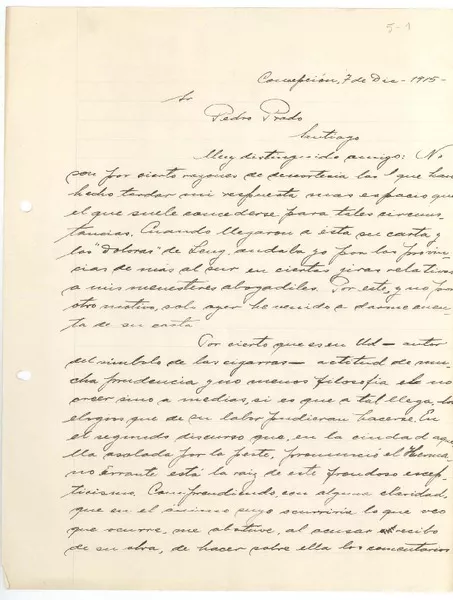 5-1
Concepción, 7 de Dic - 1915 -
Sr
Pedro Prado
Santiago
Muy distinguido amigo: No
son por cierto razones de desidia las que han
hecho tardar mi respuesta mas espacio que
el que suele concederse para tales circuns
tancias. Cuando llegaron a ésta su carta y
las "Doloras" de Leng, andaba yo por las provin
cias de más al sur en ciertas giras relativas
a mis menesteres abogadiles. Por esto, y no por
otro motivo, solo ayer he venido a darme cuen
ta de su carta
Por cierto que es en Ud - autor
del símbolo de las cigarras - actitud de mu
cha prudencia y no menos filosofía el no
creer sino a medias, si es que a tal llega, los
elogios que de su labor pudieran hacerse. En
el segundo discurso que, en la ciudad aque
lla asolada por la peste, pronunció el Herma
no Errante está la raíz de este frondoso escep
ticismo. Comprendiendo con alguna claridad
que en el ánimo suyo ocurriría lo que veo
que ocurre, me abstuve, al acusar recibo
de su obra, de hacer sobre ella los comentarios